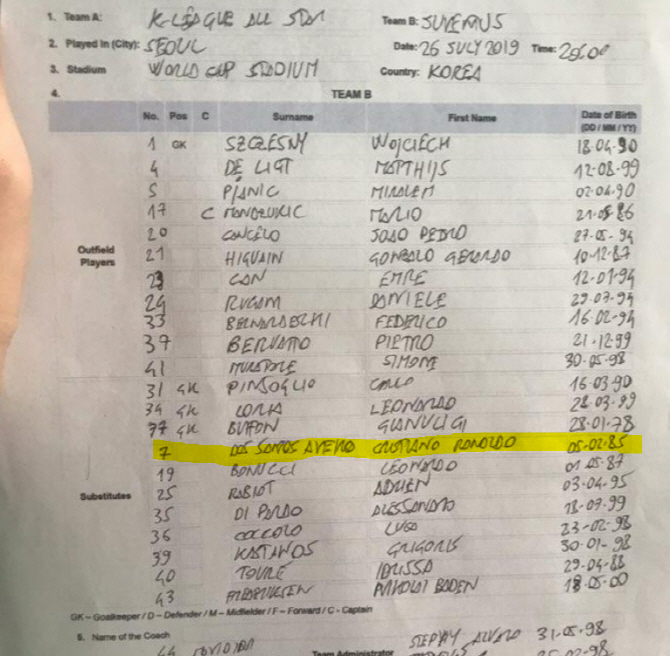 1. Team A: K-LEAGUE ALL STAR Team B: JUVENTUS
2. Played in (City): SEOUL Date: 26 JULY 2019 Time: 20:00
3. Stadium WORLD CUP STADIUM Country: KOREA
4. TEAM B
No. Pos C Surname First Name Date of Birth
(DD / MM / YY)
1 GK SZCZESNY WOJCIECH 18.04.90
4 DE LIGT MATTHIJS 12.08.99
5 PJANIC MIRALEM 02.04.90
17 C MANDZUKIC MARIO 21.05.86
20 CANCELO JOAO PEDRO 27.05.94
Outfield Players
21 HIGUAIN GONZALO GERARDO 10.12.87
23 CAN EMRE 12.01.94
24 RUGANI DANIELE 29.07.94
33 BERNARDESCHI FEDERICO 16.02.94
37 BERUATTO PIETRO 21.12.99
41 MURATORE SIMONE 30.05.98
31 GK PINSOGLIO CARLO 16.03.90
34 GK LORIA LEONARDO 28.03.99
77 GK BUFFON GIANLUIGI 28.01.78
7 DOS SANTOS AVEIRO CRISTIANO RONALDO 05.02.85
19 BONUCCI LEONARDO 01.05.87
Substitutes
25 RABIOT ADRIEN 03.04.95
35 DI PARDO ALESSANDRO 18.07.99
36 COCCOLO LUCA 23.02.98
39 KASTANOS GRIGORIS 30.01.98
40 TOURÉ IDRISSA 29.04.98
43 NIKOLAI BADEN 18.05.00
GK – Goalkeeper / D – Defender / M – Midfielder / F – Forward / C - Captain
5. Name of the Coach
Team Administrator 31.05.98